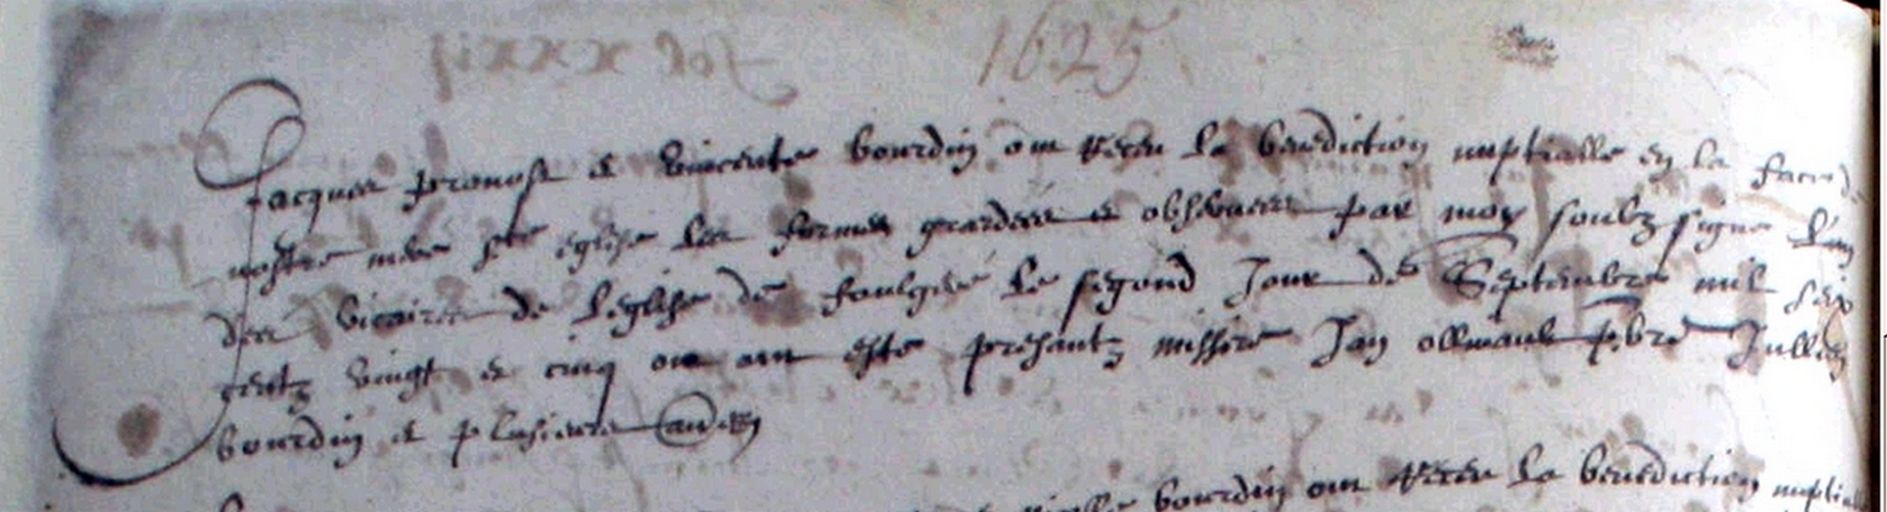 1625
Jacques provost et vincente bourdin ont receu la benediction nuptialle en la face d
nostre mere ste eglise les formes gardees et observees par moy soubz signe l'un
des vicaires de leglise de foulgere le segond Jour de Septembre mil six
centz vingt et cinq ou ont este presantz missire Jan pbre Jullien
bourdin et plusieurs aultres
bourdin ont receu la benediction nuptialle